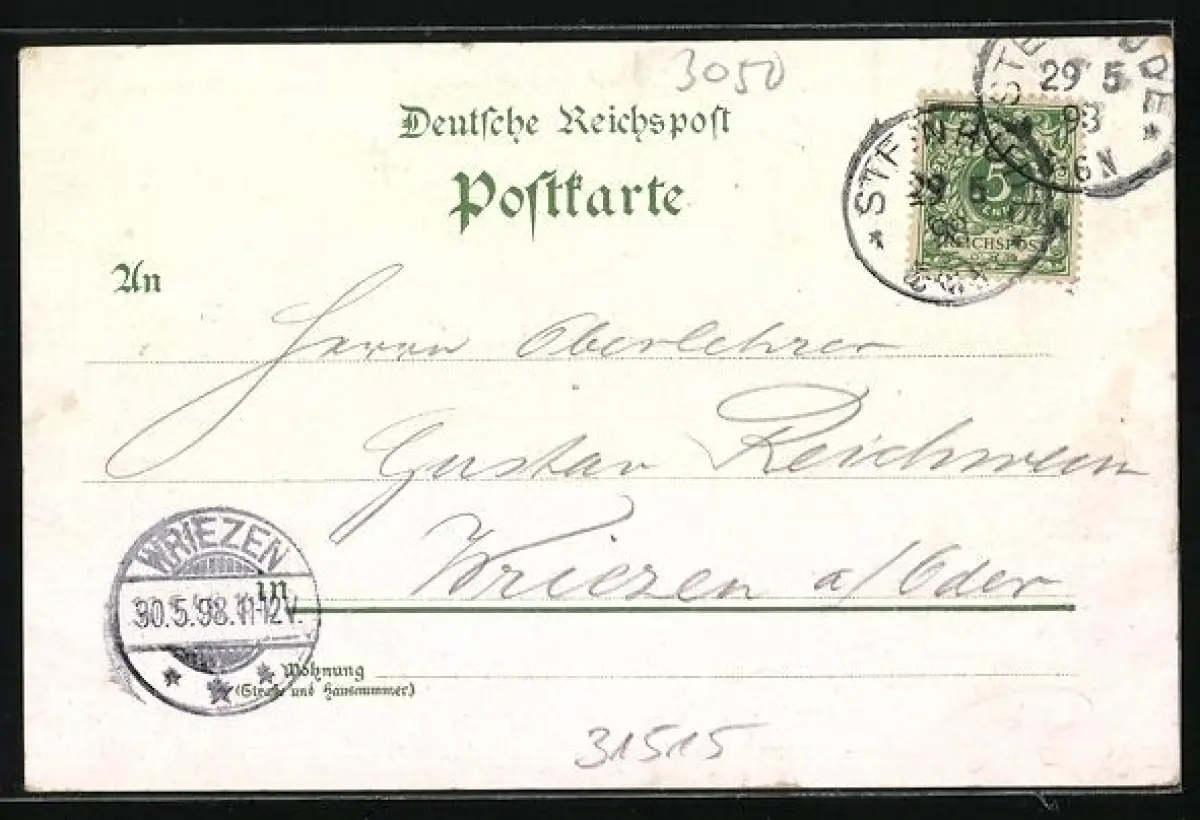 3050
Deutsche Reichspost
Postkarte
An
29 5
98
5-6N
29 5
98
5
REICHSPOST
Herrn Oberlehrer
Gustav Reichwein
Wriezen a/Oder
in
WRIEZEN
30.5.98.11-12V.
Wohnung
(Straße und Hausnummer)
31515